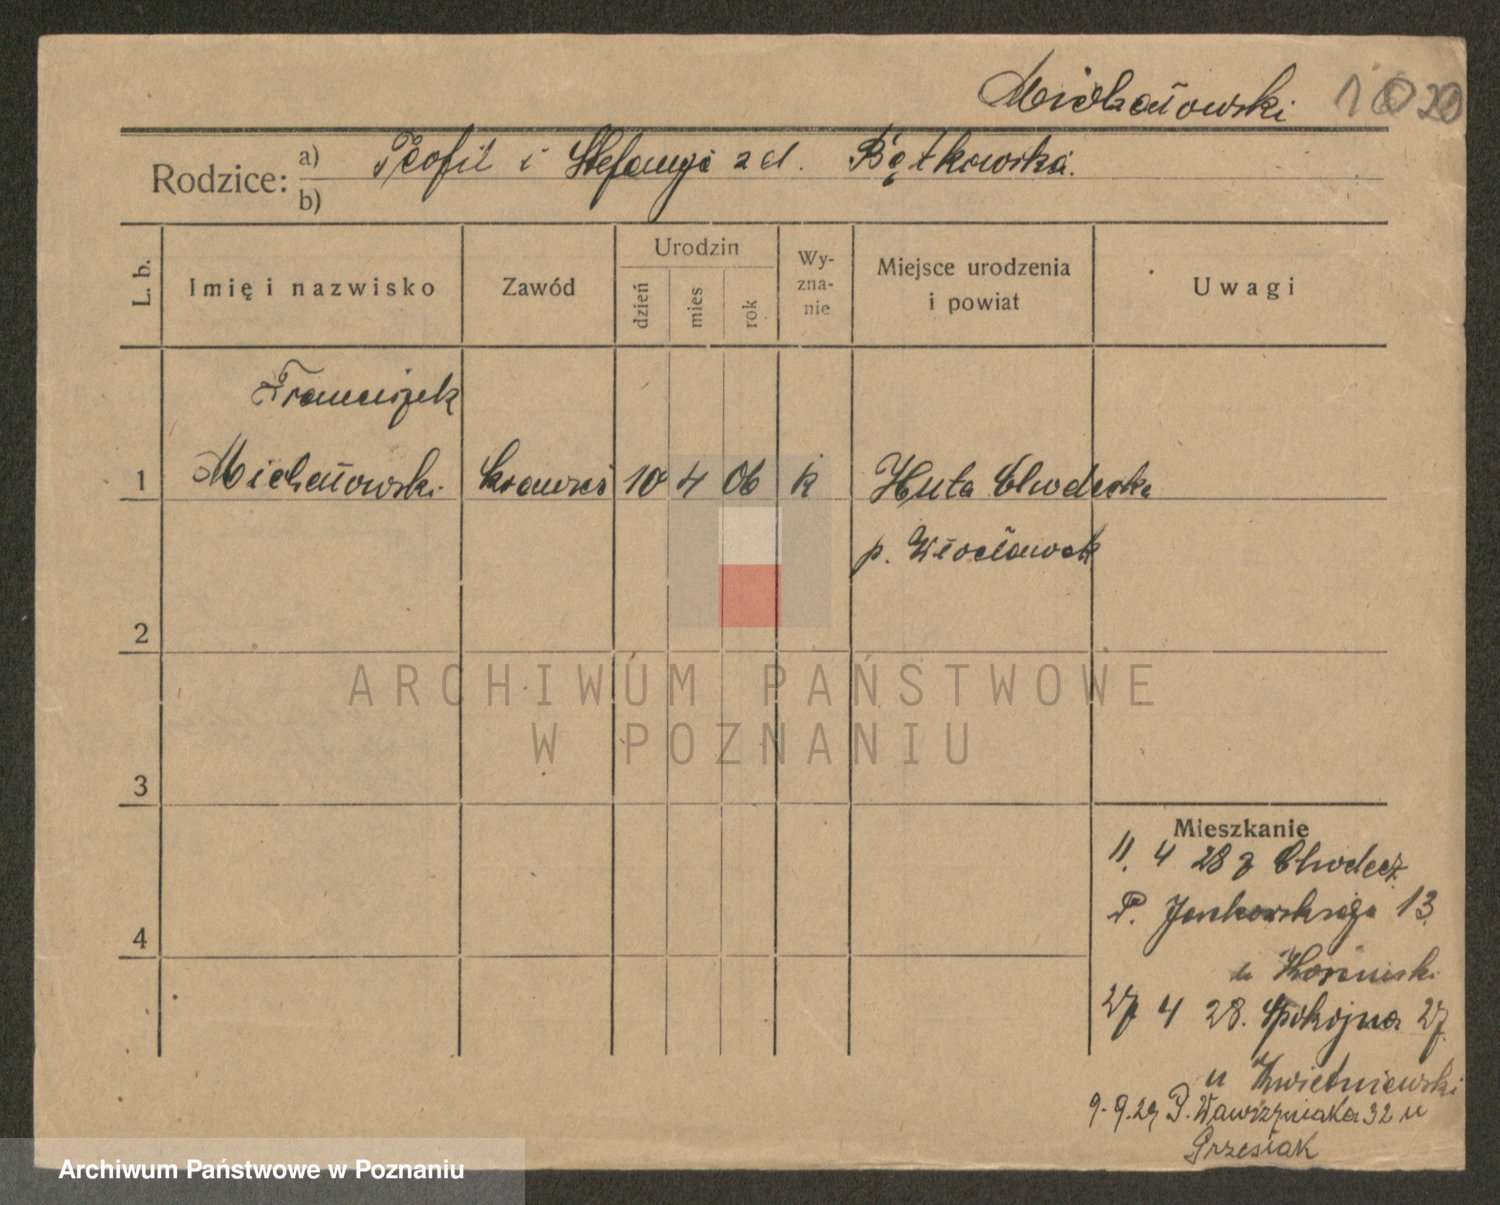 Michałowski
Rodzice: a) Teofil i Stefanja zd. Bątkowska.
b)
L. b. Imię i nazwisko Zawód Urodzin dzień mies rok Wy-zna-nie Miejsce urodzenia i powiat Uwagi
Franciszek
1 Michałowski krawiec 10 4 06 k Huta Chodecka
p. Włocławek
2
3
4
Mieszkanie
11. 4 28 z Chodecz
P. Jackowskiego 13.
u
27 4 28. Spokojna 27.
u Kwietniewski
9.9.29 P. Wawrzyniaka 32 u
Grzesiak
ARCHIWUM PAŃSTWOWE
W POZNANIU
Archiwum Państwowe w Poznaniu